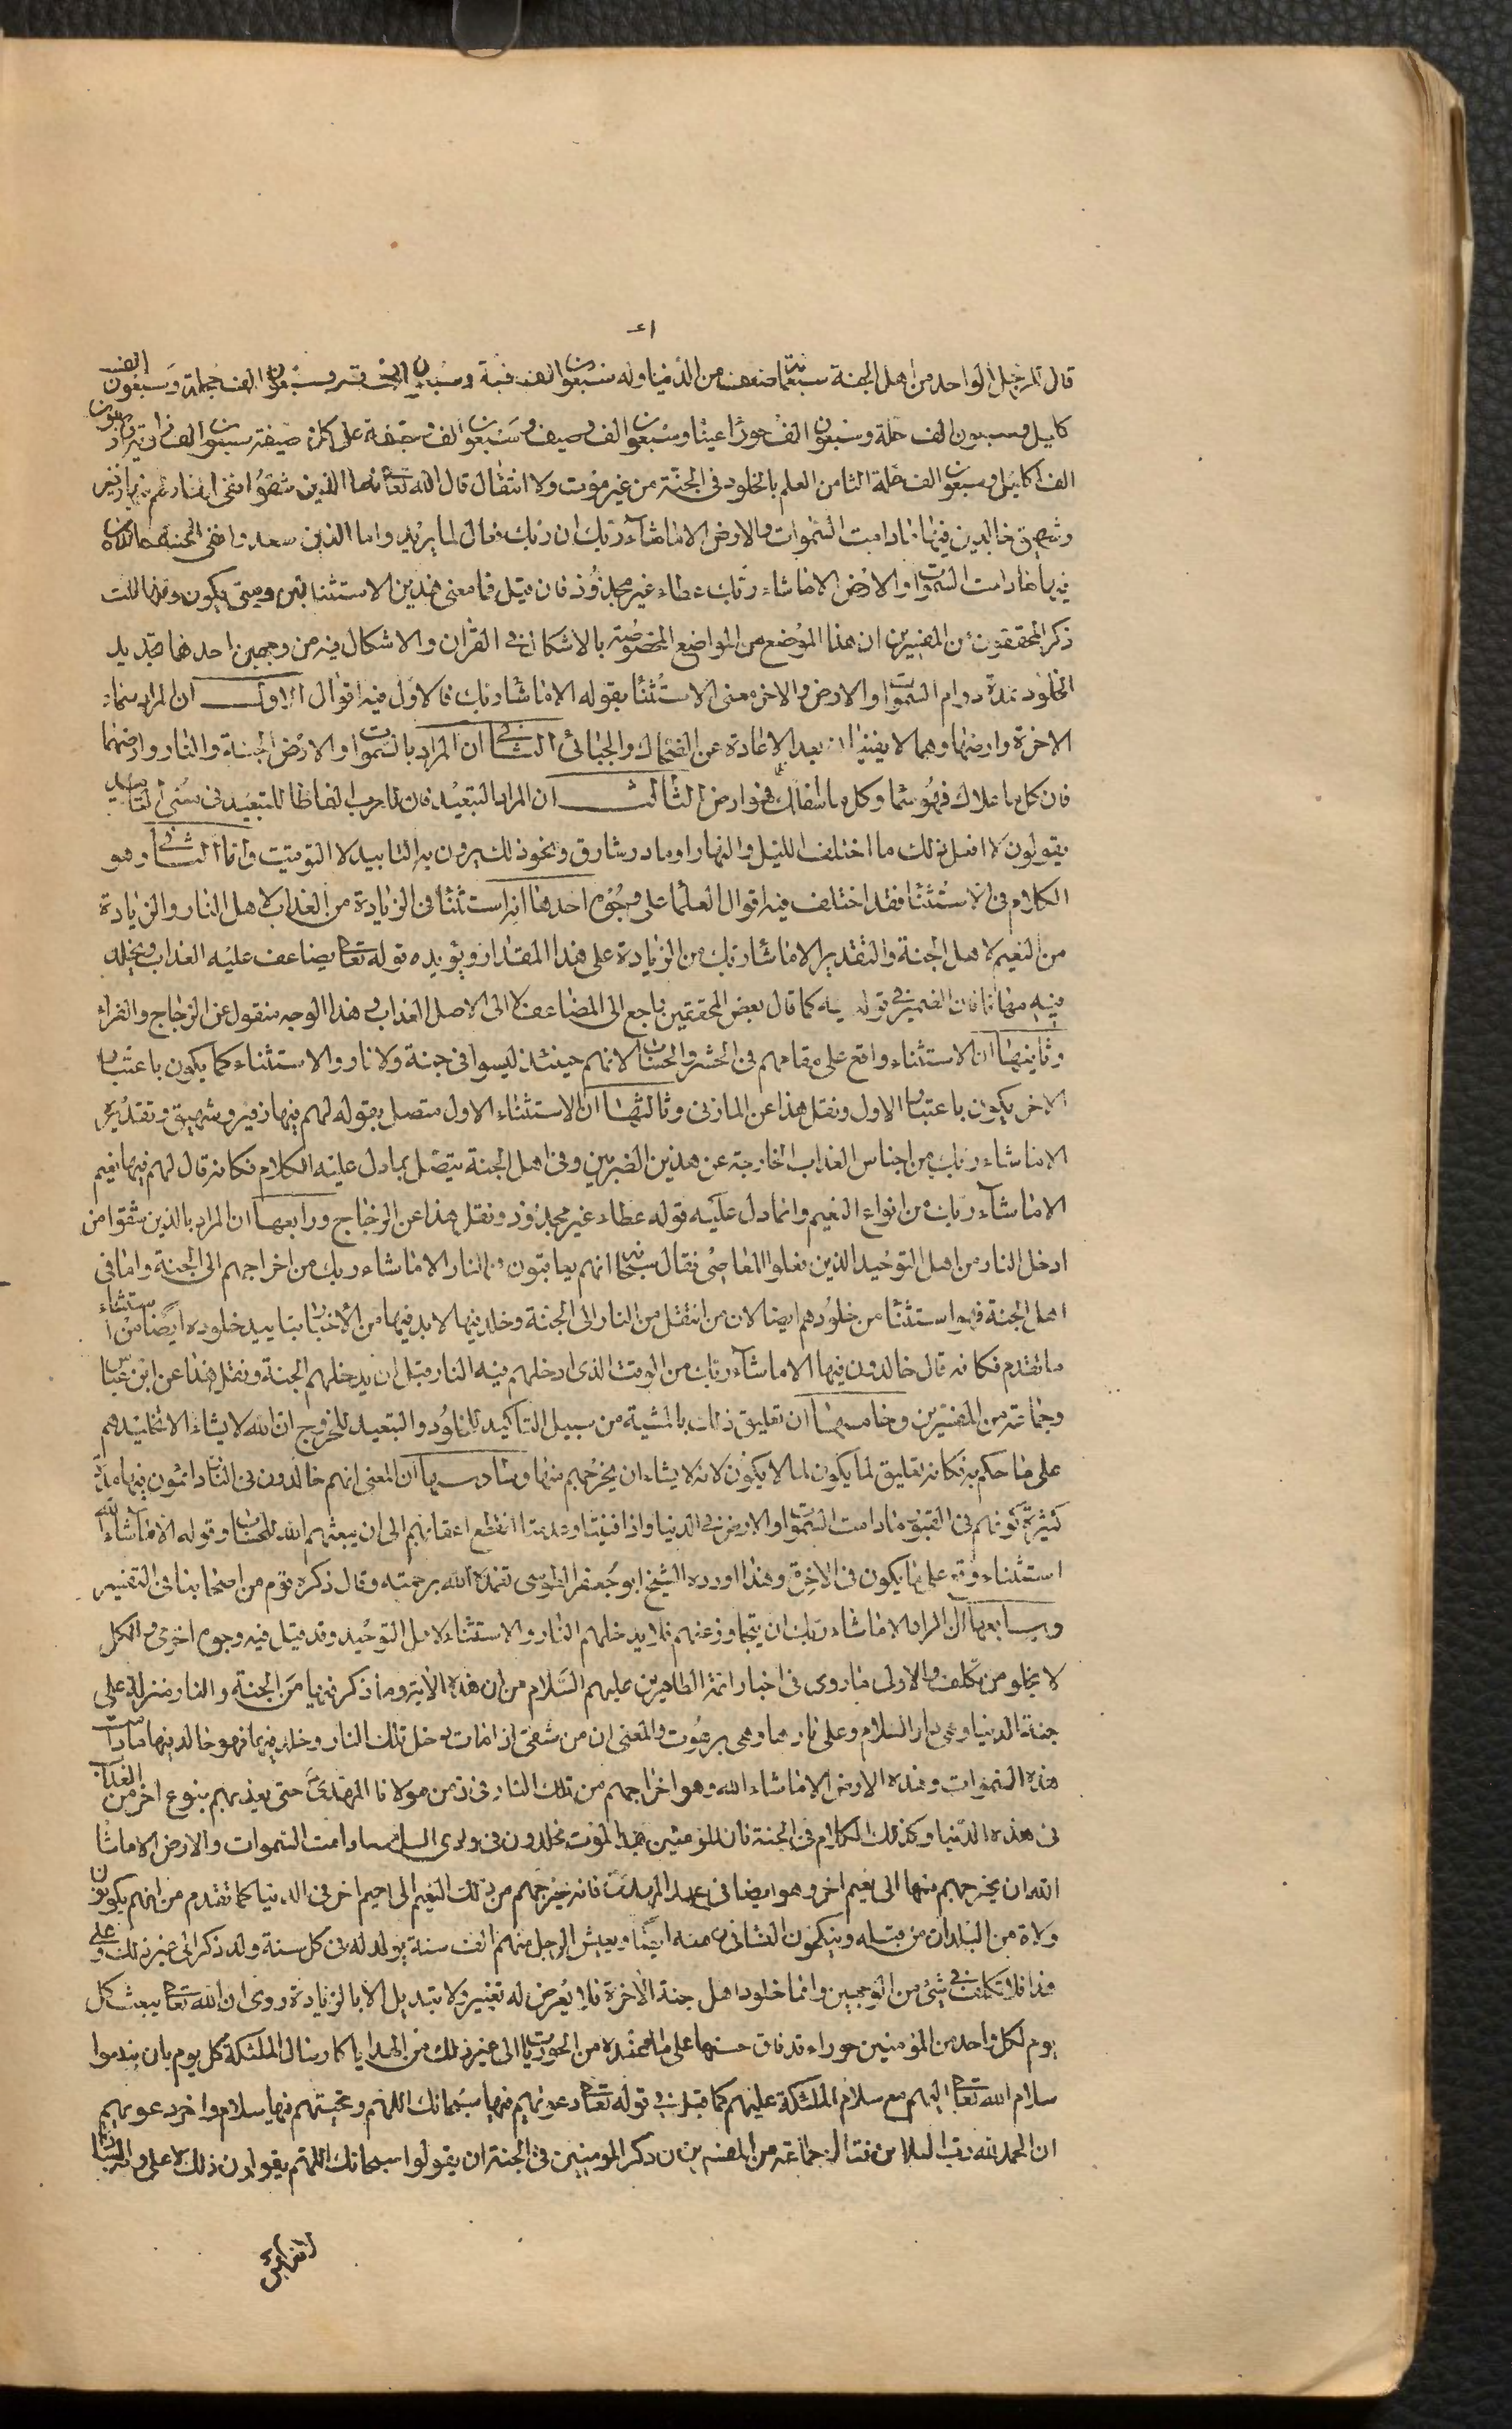 ٤١
قال للرجل الواحد من اهل الجنة سبعمائة ضعف من الدنيا وله سبعون الف قبة وسبعون الف قصر وسبعون الف حجلة وسبعون الف
كليل وسبعون الف حلة وسبعون الف حوراء عينا وسبعون الف وصيف وسبعون الف وصيفة على كل وصيفة سبعون الف ذوائب واربعون
الف اكليل وسبعون الف حلة الثامن العلم بالخلود في الجنة من غير موت ولا انتقال قال الله تعالى فاما الذين شقوا ففي النار لهم فيها زفير
وشهيق خالدين فيها مادامت السموات والارض الا ماشاء ربك ان ربك فعال لما يريد واما الذين سعدوا ففي الجنة خالدين
فيها مادامت السموات والارض الا ماشاء ربك عطاء غير مجذوذ فان قيل فما معنى هذين الاستثنائين ومتى يكون وقتهما قلت
ذكر المحققون من المفسرين ان هذا الموضع من المواضع المخصوصة بالاشكال في القران والاشكال فيه من وجهين احدهما تحديد
الخلود بمدة دوام السموات والارض والاخر معنى الاستثناء بقوله الا ماشاء ربك فالاول فيه اقوال الاول ان المراد سماء
الاخرة وارضها وهما لا يفنيان بعد الاعادة عن الضحاك والجبائي الثاني ان المراد بالسموات والارض الجنة والنار وارضهما
فان كل ما علاك فهو سماء وكل ما اسفلك فهو ارض الثالث ان المراد التبعيد فان للعرب الفاظا للتبعيد في معنى التأبيد
يقولون لا افعل ذلك ما اختلف الليل والنهار او ما در شارق ونحو ذلك يريدون به التأبيد لا التوقيت واما الثاني وهو
الكلام في الاستثناء فقد اختلف فيه اقوال العلماء على وجوه احدها انه استثناء في الزيادة من العذاب لاهل النار والزيادة
من النعيم لاهل الجنة والتقدير الا ماشاء ربك من الزيادة على هذا المقدار ويؤيده قوله تعالى يضاعف عليه العذاب ويخلد
فيه مهانا فان الضمير في قوله فيه كما قال بعض المحققين راجع الى المضاعف لا الى الاصل العذاب وهذا الوجه منقول عن الزجاج والفراء
وثانيها ان الاستثناء واقع على مقامهم في الحشر والحساب لانهم حينئذ ليسوا في جنة ولا نار والاستثناء كما يكون باعتبار
الاخر يكون باعتبار الاول ونقل هذا عن المازني وثالثها ان الاستثناء الاول متصل بقوله لهم فيها زفير وشهيق وتقديره
الا ماشاء ربك من اجناس العذاب الخارجة عن هذين الضربين وفي اهل الجنة يتصل بما دل عليه الكلام فكانه قال لهم فيها نعيم
الا ماشاء ربك من انواع النعيم وانما دل عليه قوله عطاء غير مجذوذ ونقل هذا عن الزجاج ورابعها ان المراد بالذين شقوا من
ادخل النار من اهل التوحيد الذين فعلوا المعاصي فقال سبحانه انهم يعاقبون في النار الا ماشاء ربك من اخراجهم الى الجنة واما في
اهل الجنة فهو استثناء من خلودهم ايضا لان من انتقل من النار الى الجنة وخلد فيها لابد فيها من الاخبار بتأبيد خلوده ايضا من استثناء
ما تقدم فكانه قال خالدون فيها الا ماشاء ربك من الوقت الذي ادخلهم فيه النار قبل ان يدخلهم الجنة ونقل هذا عن ابن عباس
وجماعة من المفسرين وخامسها ان تعليق ذلك بالمشية من سبيل التأكيد للخلود والتبعيد للخروج ان الله لا يشاء الا تخليدهم
على ما حكم به فكانه تعليق لما يكون لما لا يكون لانه لا يشاء ان يخرجهم منها وسادسها ان المعنى انهم خالدون في النار دائمون فيها مدة
كثيرة كونهم في القبور مادامت السموات والارض في الدنيا واذا فنيتا وعدمتا انقطع اعقابهم الى ان يبعثهم الله للحساب وقوله الا ماشاء الله
استثناء وقع على ما يكون في الاخرة وهذا اورده الشيخ ابو جعفر الطوسي تغمده الله برحمته وقال ذكره قوم من اصحابنا في التفسير
وسابعها ان المراد الا ماشاء ربك ان يتجاوز عنهم فلا يدخلهم النار والاستثناء لاهل التوحيد وقد قيل فيه وجوه اخرى والكل
لا يخلو من تكلف والاولى ما روي في اخبار ائمة الطاهرين عليهم السلام من ان هذه الآية وما ذكر فيها من الجنة والنار منزل على
جنة الدنيا وهي دار السلام وعلى نارها وهي برهوت والمعنى ان من شقى اذا مات دخل تلك النار وخلد فيها فهو خالد فيها مادامت
هذه السموات وهذه الارض الا ماشاء الله وهو اخراجهم من تلك النار في زمن مولانا المهدي حتى يعذبهم بنوع اخر من العذاب
في هذه الدنيا وكذلك الكلام في الجنة فان المؤمنين بعد الموت مخلدون في وادي السلام مادامت السموات والارض الا ماشاء
الله ان يخرجهم منها الى نعيم اخر وهو ايضا في عهد المهدي فانه يخرجهم من ذلك النعيم الى نعيم اخر في الدنيا كما تقدم من انهم يكونون
ولاة من البلدان من قبله وينكحون النساء منه ايضا ويعيش الرجل منهم الف سنة يولد له في كل سنة ولد ذكر الى غير ذلك وعلى
هذا فلا تكلف في شيء من الوجهين واما خلود اهل جنة الاخرة فلا يعرض له تغيير ولا تبديل الا بالزيادة روي ان الله تعالى يبعث كل
يوم لكل واحد من المؤمنين حوراء قد فاق حسنها على ما عنده من الحوريات الى غير ذلك من الهدايا كارسال الملئكة كل يوم بان يبلغوا
سلام الله تعالى اليهم مع سلام الملئكة عليهم كما قيل في قوله تعالى دعويهم فيها سبحانك اللهم وتحيتهم فيها سلام واخر دعويهم
ان الحمد لله رب العالمين فقال جماعة من المفسرين ان ذكر المؤمنين في الجنة ان يقولوا سبحانك اللهم يقولون ذلك لا على وجه العبادة